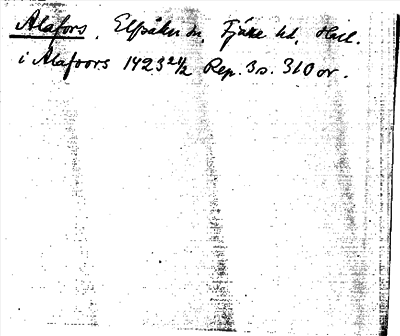 Alafors, Elfsåker sn, Fjäre hd, Hall.
i Alafoors 1423 21/2 Rep. 3 s. 310 or.